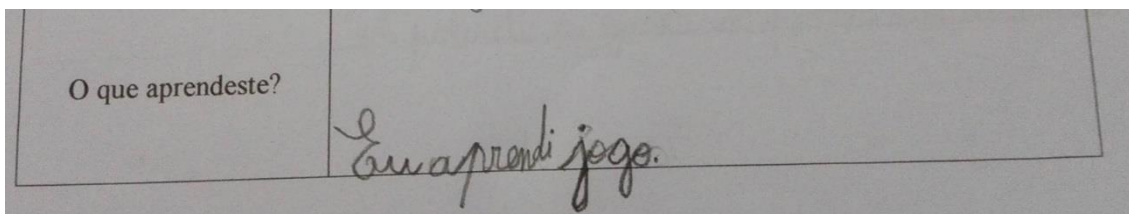 O que aprendeste?
Eu aprendi jogo.